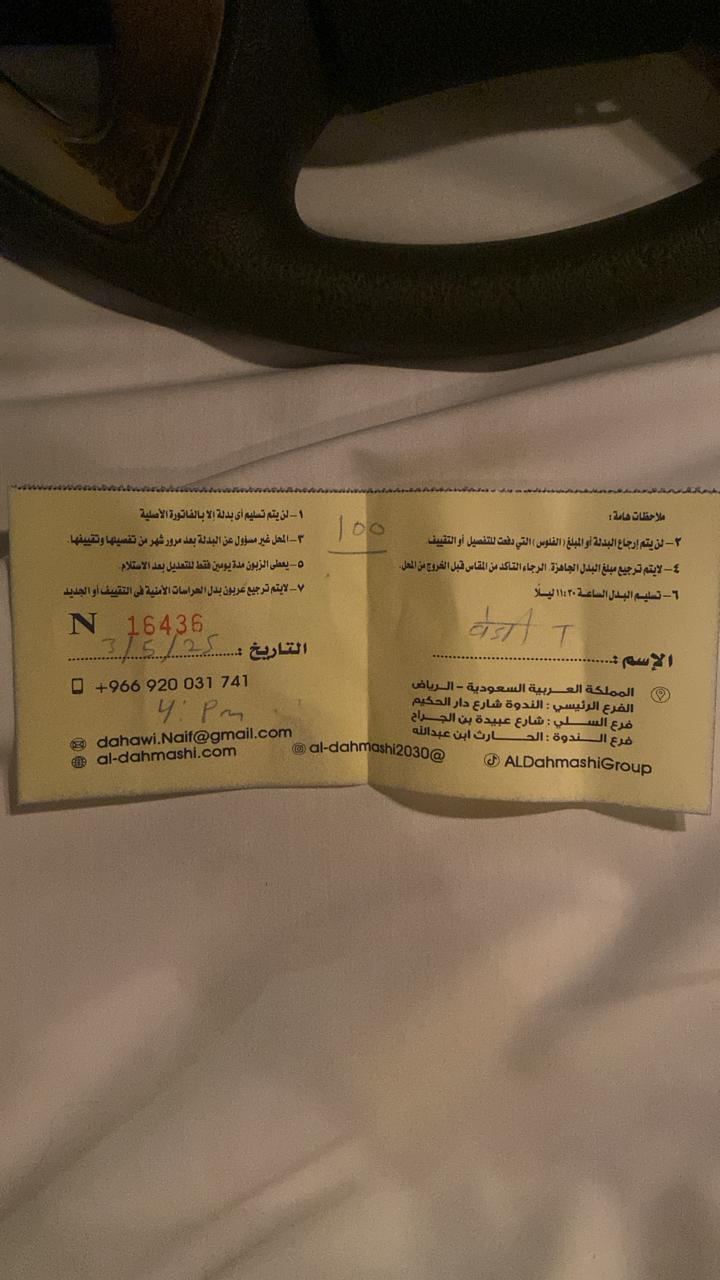 ملاحظات هامة :
١- لن يتم تسليم أى بدلة إلا بالفاتورة الأصلية
٢- لن يتم إرجاع البدلة أو المبلغ (الفلوس) التي دفعت للتفصيل أو التقييف.
٣- المحل غير مسؤول عن البدلة بعد مرور شهر من تفصيلها وتقييفها.
٤- لايتم ترجيع مبلغ البدل الجاهزة. الرجاء التأكد من المقاس قبل الخروج من المحل.
٥- يعطى الزبون مدة يومين فقط للتعديل بعد الاستلام.
٦- تسليم البدل الساعة ١١:٣٠ ليلاً
٧- لايتم ترجيع عربون بدل الحراسات الأمنية فى التقييف أو الجديد
100
N 16436
الإسم :
T
التاريخ : 3/5/25
+966 920 031 741
4: Pm
المملكة العربية السعودية - الرياض
الفرع الرئيسي : الندوة شارع دار الحكيم
فرع السلي : شارع عبيدة بن الجراح
فرع الندوة : الحارث ابن عبدالله
dahawi.Naif@gmail.com
al-dahmashi.com
al-dahmashi2030@
ALDahmashiGroup